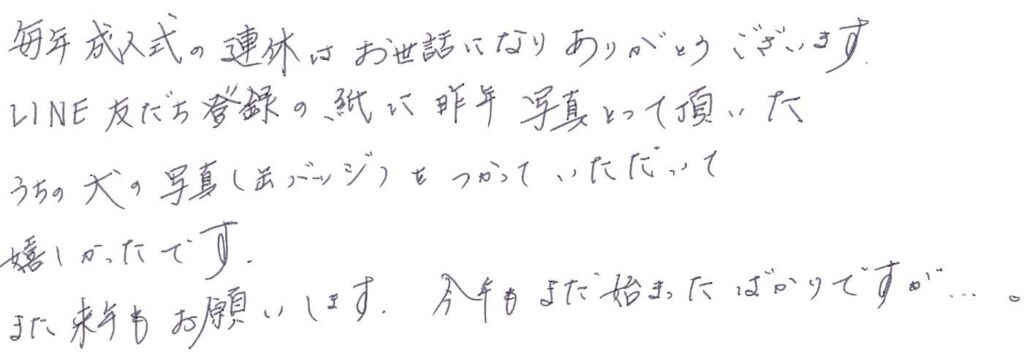 毎年成人式の連休はお世話になりありがとうございます.
LINE友だち登録の紙に昨年写真とって頂いた
うちの犬の写真(缶バッジ)をつかっていただいて
嬉しかったです.
また来年もお願いします. 今年もまだ始まったばかりですが…。